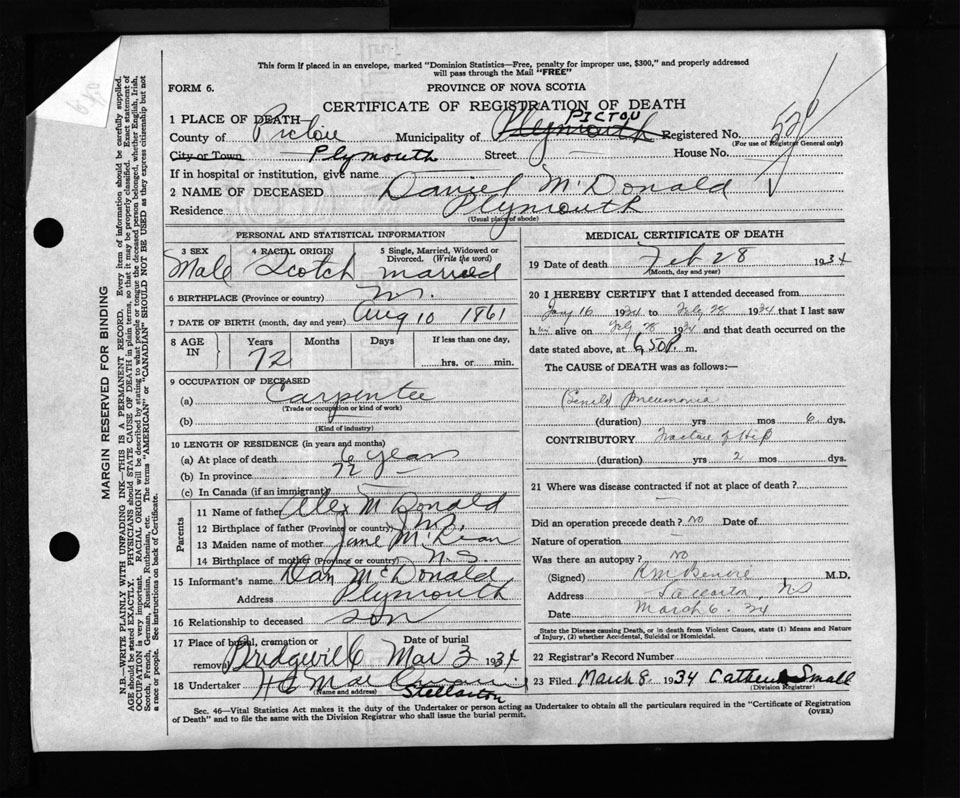 This form if placed in an envelope, marked "Dominion Statistics—Free, penalty for improper use, $300," and properly addressed
will pass through the Mail "FREE"
FORM 6.
PROVINCE OF NOVA SCOTIA
CERTIFICATE OF REGISTRATION OF DEATH
1 PLACE OF DEATH—
County of Pictou Municipality of Plymouth PICTOU Registered No.
(For use of Registrar General only)
City or Town Plymouth Street — House No.
If in hospital or institution, give name
2 NAME OF DECEASED Daniel McDonald
Residence Plymouth
(Usual place of abode)
PERSONAL AND STATISTICAL INFORMATION
3 SEX 4 RACIAL ORIGIN 5 Single, Married, Widowed or
Divorced. (Write the word)
Male Scotch married
6 BIRTHPLACE (Province or country) N.S.
7 DATE OF BIRTH (month, day and year) Aug 10 1861
8 AGE IN Years Months Days If less than one day,
72 hrs. or min.
9 OCCUPATION OF DECEASED
(a) Carpenter
(Trade or occupation or kind of work)
(b)
(Kind of industry)
10 LENGTH OF RESIDENCE (in years and months)
(a) At place of death 6 years
(b) In province 72
(c) In Canada (if an immigrant) —
Parents
11 Name of father Alex McDonald
12 Birthplace of father (Province or country) N.S.
13 Maiden name of mother Jane
14 Birthplace of mother (Province or country) N.S.
15 Informant's name Dan McDonald
Address Plymouth
16 Relationship to deceased son
17 Place of burial, cremation or Date of burial
removal Bridgeville Mar 3 1934
18 Undertaker
(Name and address) Stellarton
MEDICAL CERTIFICATE OF DEATH
19 Date of death Feb 28 1934
(Month, day and year)
20 I HEREBY CERTIFY that I attended deceased from
Jany 16 1934 to Feby 28 1934 that I last saw
him alive on Feby 28 1934 and that death occurred on the
date stated above, at 6.50 P. m.
The CAUSE of DEATH was as follows:—
Senile pneumonia
(duration) yrs mos 6 dys.
CONTRIBUTORY Fracture of Hip
(duration) yrs 2 mos dys.
21 Where was disease contracted if not at place of death?
—
Did an operation precede death? NO Date of
Nature of operation —
Was there an autopsy? NO
(Signed) M.D.
Address Stellarton, NS
Date March 6. 34
State the Disease causing Death, or in death from Violent Causes, state (1) Means and Nature
of Injury, (2) whether Accidental, Suicidal or Homicidal.
22 Registrar's Record Number
23 Filed March 8, 1934 Small
(Division Registrar)
Sec. 46—Vital Statistics Act makes it the duty of the Undertaker or person acting as Undertaker to obtain all the particulars required in the "Certificate of Registration
of Death" and to file the same with the Division Registrar who shall issue the burial permit.
(OVER)
MARGIN RESERVED FOR BINDING
N.B.—WRITE PLAINLY WITH UNFADING INK—THIS IS A PERMANENT RECORD. Every item of information should be carefully supplied.
AGE should be stated EXACTLY. PHYSICIANS should STATE CAUSE OF DEATH in plain terms, so that it may be properly classified. Exact statement of
OCCUPATION is very important. RACIAL ORIGIN will be described by stating to what people or tongue the deceased person belonged, whether English, Irish,
Scotch, French, German, Russian, Ruthenian, etc. The terms "AMERICAN" or "CANADIAN" SHOULD NOT BE USED as they express citizenship but not
a race or people. See instructions on back of Certificate.